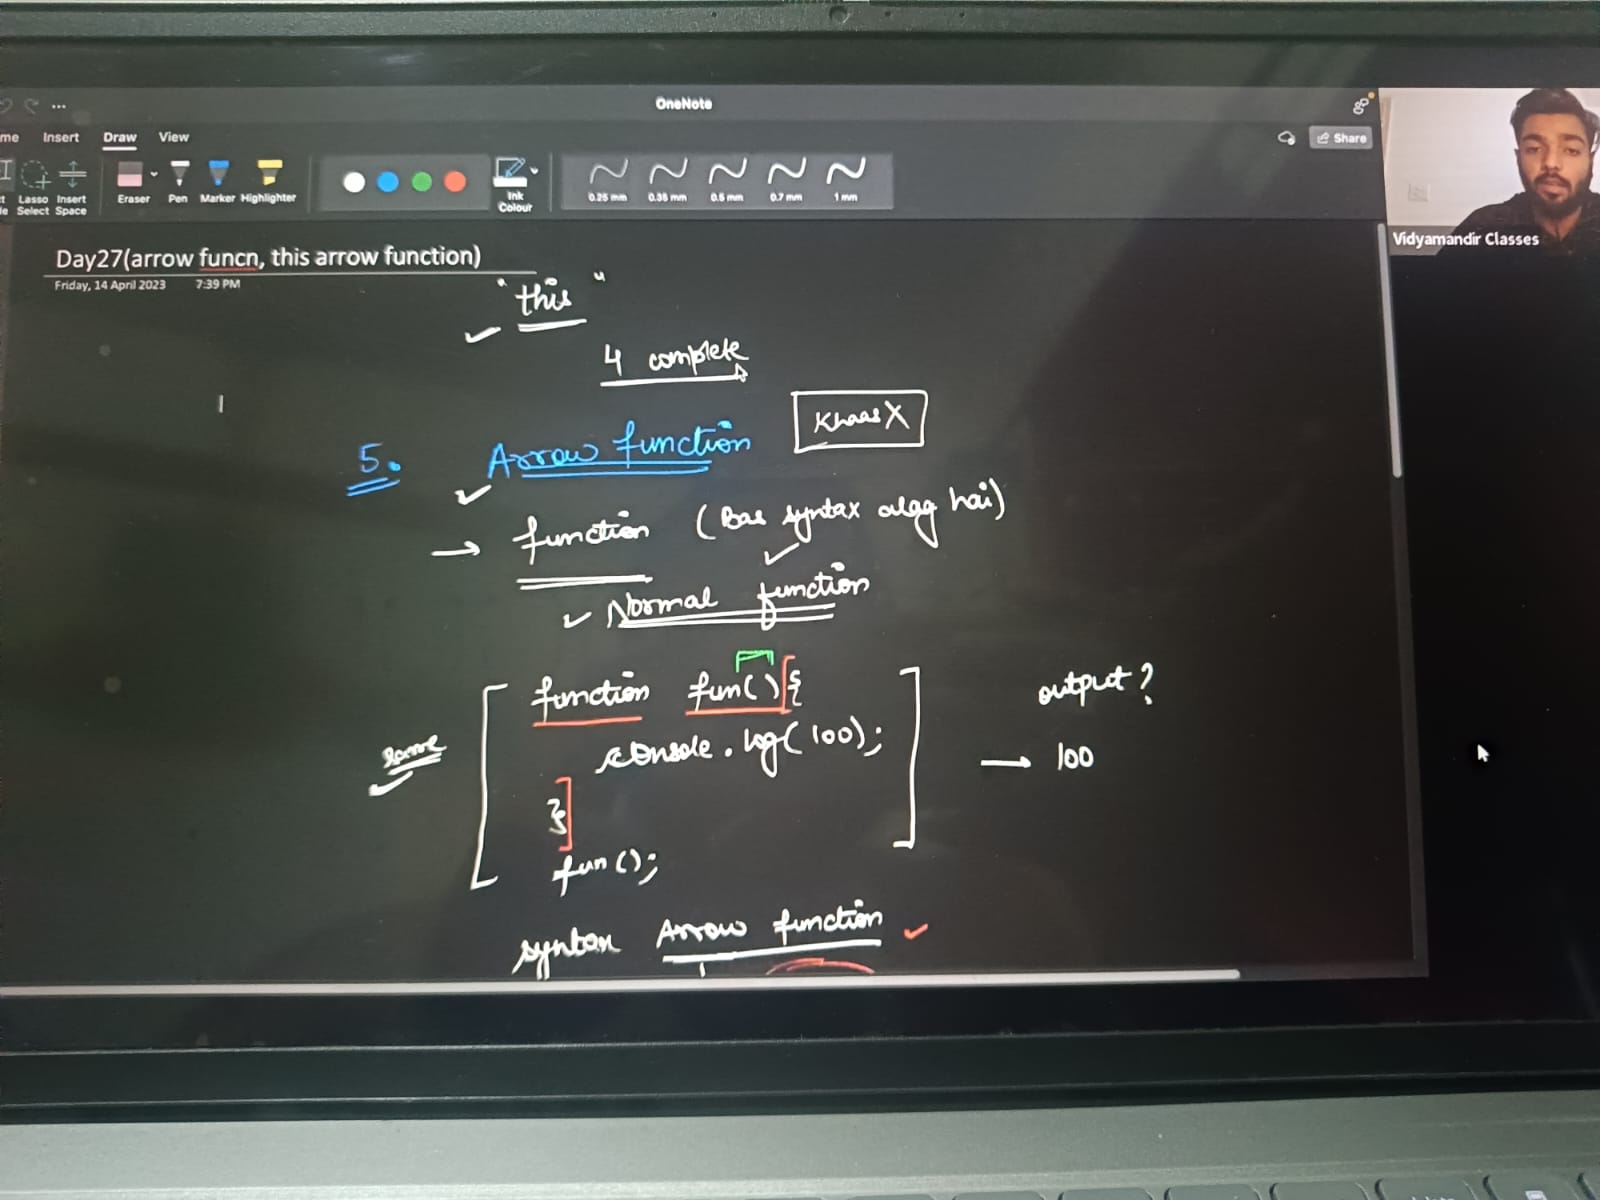 OneNote
me Insert Draw View
Share
Lasso Select
Insert Space
Eraser
Pen
Marker
Highlighter
Ink Colour
0.25 mm
0.35 mm
0.5 mm
0.7 mm
1 mm
Vidyamandir Classes
Day27(arrow funcn, this arrow function)
Friday, 14 April 2023 7:39 PM
"this"
4 complete
Khaas X
5. Arrow function
→ function (Bas syntax alag hai)
Normal function
function fun() {
output?
same
console.log(100);
→ 100
}
fun();
syntax Arrow function